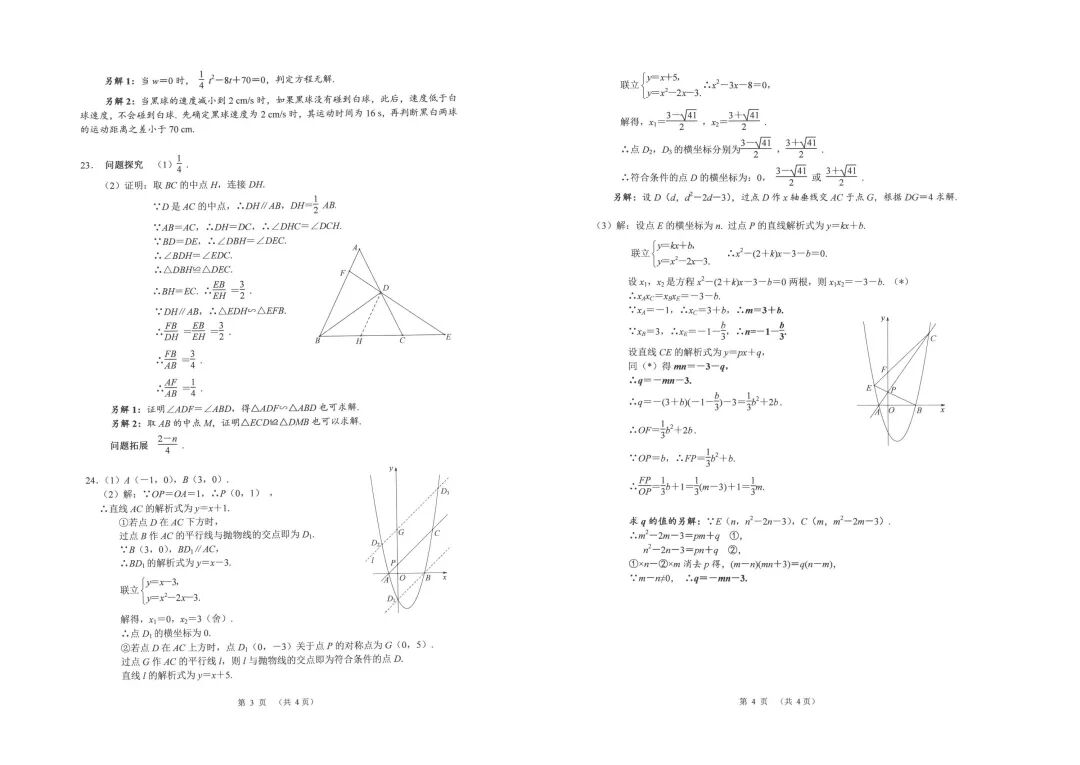 另解1：当 w＝0 时， 1/4 t²－8t＋70＝0，判定方程无解.
另解2：当黑球的速度减小到 2 cm/s 时，如果黑球没有碰到白球，此后，速度低于白
球速度，不会碰到白球. 先确定黑球速度为 2 cm/s 时，其运动时间为 16 s，再判断黑白两球
的运动距离之差小于 70 cm.
23. 问题探究 （1）1/4 .
（2）证明：取 BC 的中点 H，连接 DH.
∵D 是 AC 的中点，∴DH∥AB，DH＝1/2 AB.
∵AB＝AC，∴DH＝DC，∴∠DHC＝∠DCH.
∵BD＝DE，∴∠DBH＝∠DEC.
∴∠BDH＝∠EDC.
∴△DBH≌△DEC.
∴BH＝EC. ∴EB/EH＝3/2 .
∵DH∥AB，∴△EDH∽△EFB.
∴FB/DH＝EB/EH＝3/2 .
∴FB/AB＝3/4 .
∴AF/AB＝1/4 .
A
F
D
B H C E
另解1：证明∠ADF＝∠ABD，得△ADF∽△ABD 也可求解.
另解2：取 AB 的中点 M，证明△ECD≌△DMB 也可以求解.
问题拓展 2－n/4 .
24.（1）A（－1，0），B（3，0）.
（2）解：∵OP＝OA＝1，∴P（0，1），
∴直线 AC 的解析式为 y＝x＋1.
①若点 D 在 AC 下方时，
过点 B 作 AC 的平行线与抛物线的交点即为 D₁.
∵B（3，0），BD₁∥AC，
∴BD₁ 的解析式为 y＝x－3.
联立{y＝x－3，
y＝x²－2x－3.
解得，x₁＝0，x₂＝3（舍）.
∴点 D₁ 的横坐标为 0.
②若点 D 在 AC 上方时，点 D₁（0，－3）关于点 P 的对称点为 G（0，5）.
过点 G 作 AC 的平行线 l，则 l 与抛物线的交点即为符合条件的点 D.
直线 l 的解析式为 y＝x＋5.
y
D₃
G
C
D₂
l P
A O B x
D₁
第 3 页 （共 4 页）
联立{y＝x＋5，
y＝x²－2x－3.
∴x²－3x－8＝0，
解得，x₁＝3－√41/2 ，x₂＝3＋√41/2 .
∴点 D₂，D₃ 的横坐标分别为3－√41/2 ，3＋√41/2 .
∴符合条件的点 D 的横坐标为：0， 3－√41/2 或 3＋√41/2 .
另解：设 D（d，d²－2d－3），过点 D 作 x 轴垂线交 AC 于点 G，根据 DG＝4 求解.
（3）解：设点 E 的横坐标为 n. 过点 P 的直线解析式为 y＝kx＋b.
联立{y＝kx＋b，
y＝x²－2x－3.
∴x²－(2＋k)x－3－b＝0.
设 x₁，x₂ 是方程 x²－(2＋k)x－3－b＝0 两根，则 x₁x₂＝－3－b. （*）
∴xAxC＝xBxE＝－3－b.
∵xA＝－1，∴xC＝3＋b，∴m＝3＋b.
∵xB＝3，∴xE＝－1－b/3，∴n＝－1－b/3.
设直线 CE 的解析式为 y＝px＋q，
同（*）得 mn＝－3－q，
∴q＝－mn－3.
∴q＝－(3＋b)(－1－b/3)－3＝1/3b²＋2b.
∴OF＝1/3b²＋2b.
∵OP＝b，∴FP＝1/3b²＋b.
∴FP/OP＝1/3b＋1＝1/3(m－3)＋1＝1/3m.
y
C
F
E P
A O B x
求 q 的值的另解：∵E（n，n²－2n－3），C（m，m²－2m－3）.
∴m²－2m－3＝pm＋q ①，
n²－2n－3＝pn＋q ②，
①×n－②×m 消去 p 得，(m－n)(mn＋3)＝q(n－m)，
∵m－n≠0， ∴q＝－mn－3.
第 4 页 （共 4 页）